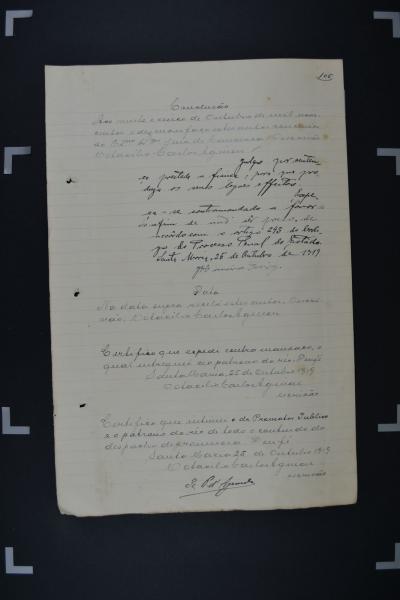 106
Conclusão
Aos vinte e cinco de Outubro de mil nove
centos e dezenove faço estes autos conclusos
ao Exmo Sr. Dr. Juiz da Comarca
Octacilio Carlos Aguiar
Julgo por senten
ça prestada a fiança, para que pro
duza os seus legaes effeitos.
Expe
ça-se contramandado a favor
afim de não ser preso, de
accordo com o artigo 248 do Codi
go do Processo Penal do Estado.
Santa Maria, 25 de Outubro de 1919
Data
Na data supra recebi estes autos. O escri
vão, Octacilio Carlos Aguiar
Certifico que expedi contra mandado, o
qual entreguei ao patrono do réo. Dou fé
Santa Maria, 25 de Outubro 1919
Octacilio Carlos Aguiar
escrivão
Certifico que intimei o dr Promotor Publico
e o patrono do réo de todo o conteúdo do
despacho de pronuncia. Dou fé
Santa Maria 25 de Outubro 1919
Octacilio Carlos Aguiar
escrivão